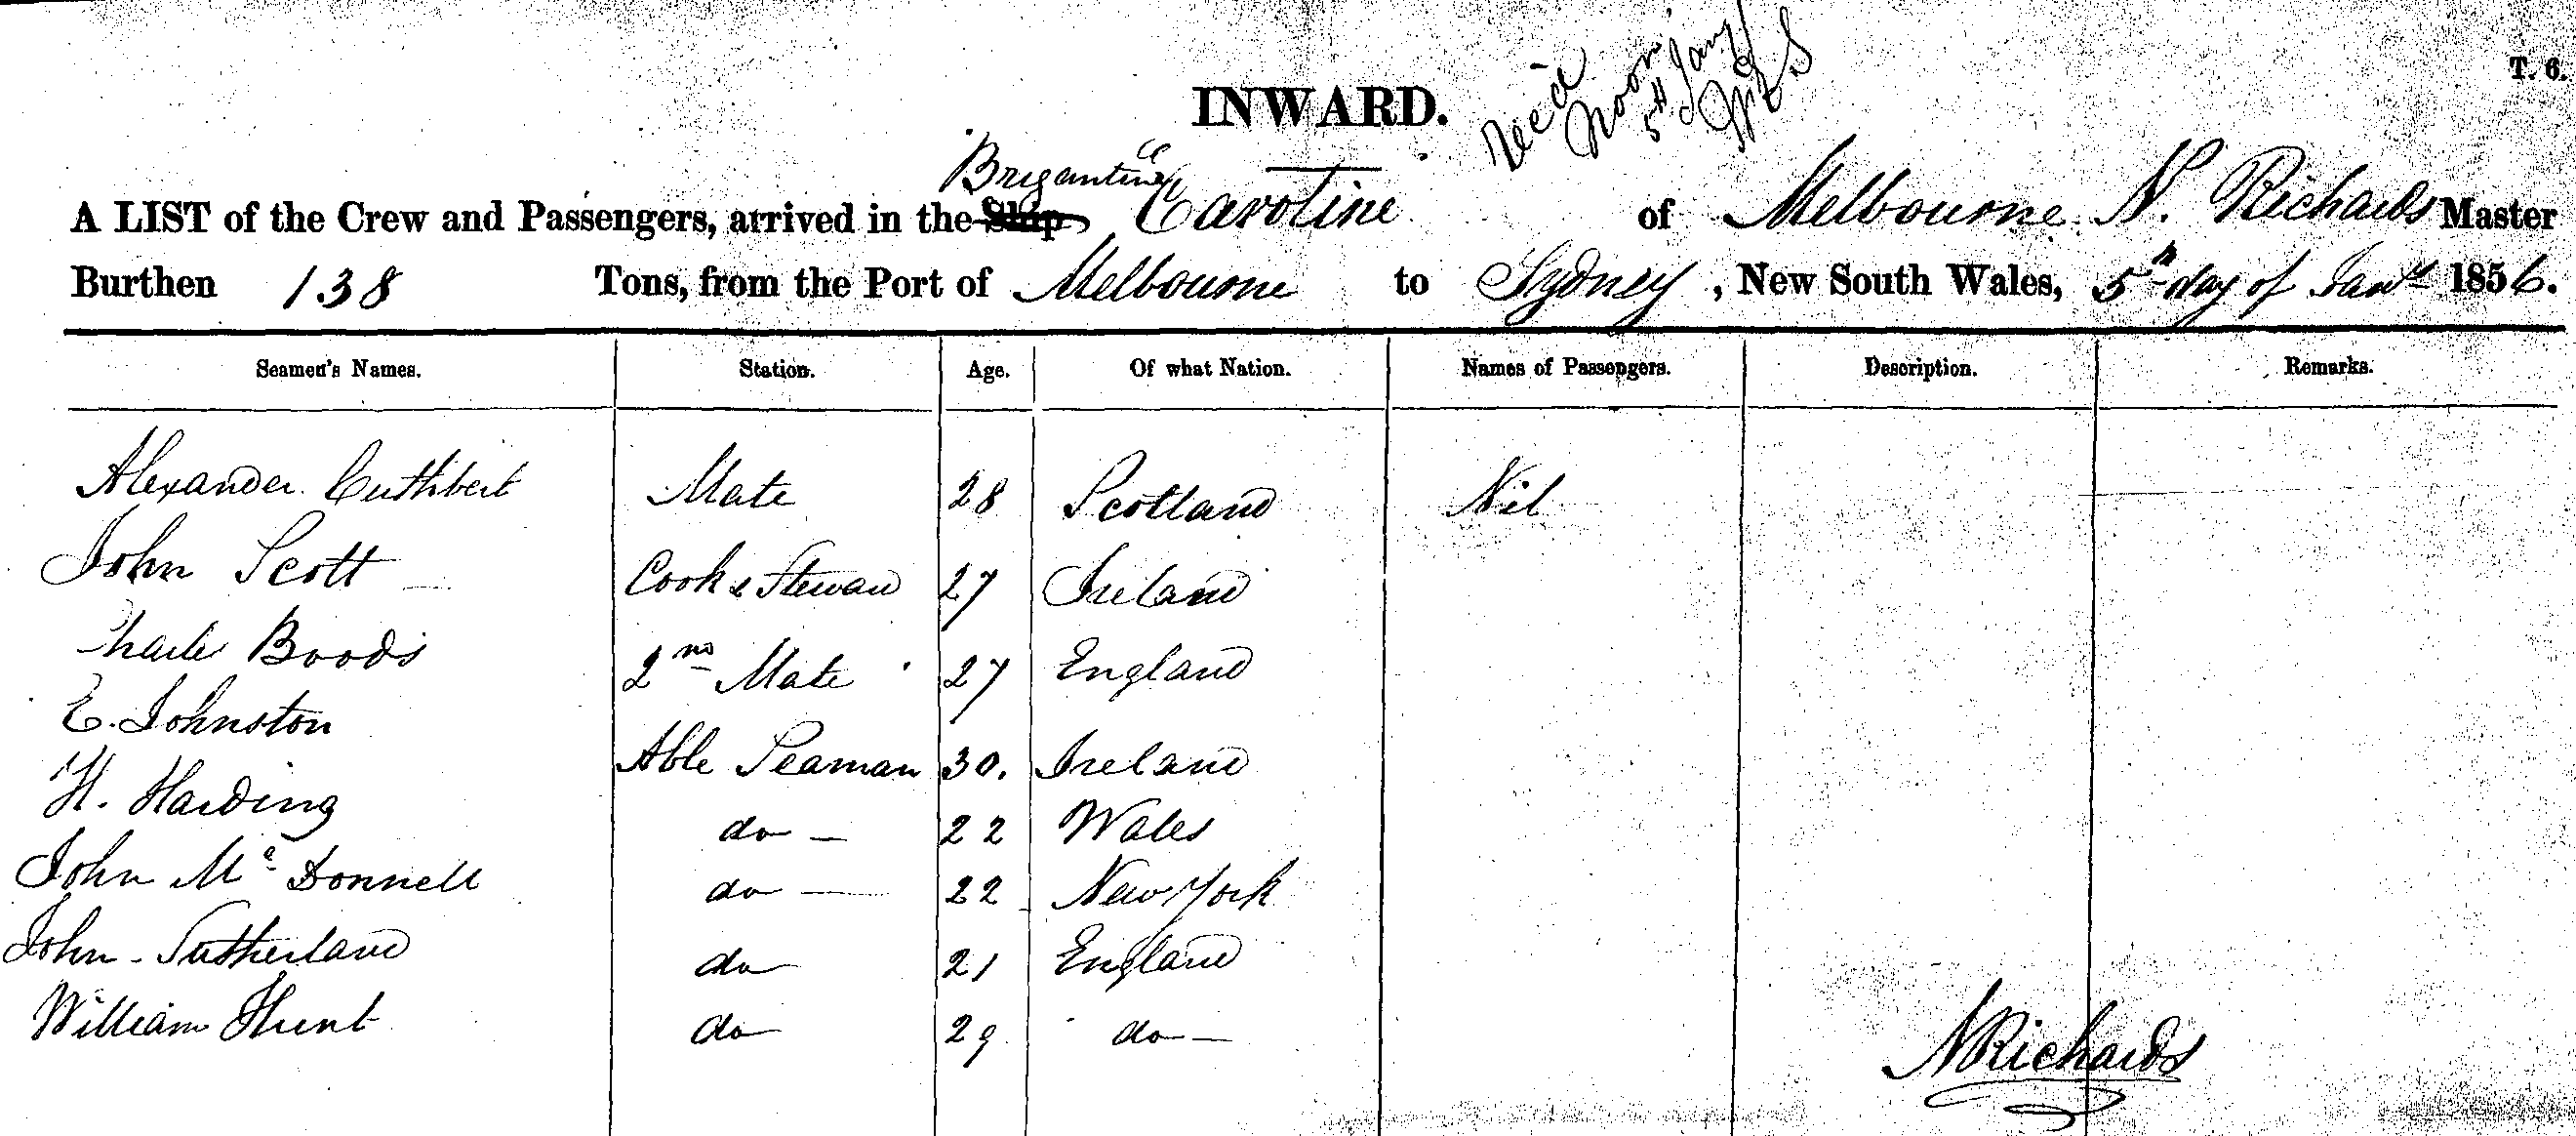 T. 6.
INWARD.
Recd
Noon
5th Jany
Brigantine
A LIST of the Crew and Passengers, arrived in the Ship Caroline of Melbourne N. Richards Master
Burthen 138 Tons, from the Port of Melbourne to Sydney, New South Wales, 5th day of Jany 1856.
Seamen's Names. Station. Age. Of what Nation. Names of Passengers. Description. Remarks.
Alexander Cuthbert Mate 28 Scotland Nil
John Scott Cook & Steward 27 Ireland
Charles Boods 2nd Mate 27 England
E. Johnston Able Seaman 30. Ireland
H. Harding do 22 Wales
John Mc Donnell do 22 New York
John Sutherland do 21 England
William Hunt do 29 do
N Richards